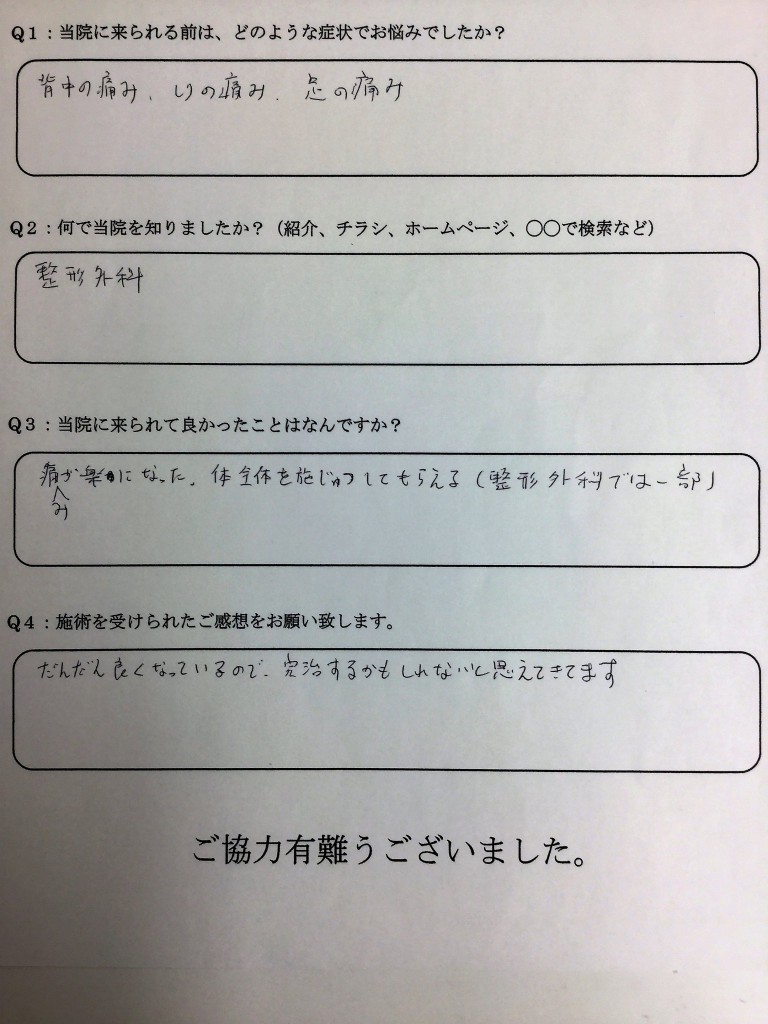 Q1：当院に来られる前は、どのような症状でお悩みでしたか？
背中の痛み、しりの痛み、足の痛み
Q2：何で当院を知りましたか？（紹介、チラシ、ホームページ、〇〇で検索など）
整形外科
Q3：当院に来られて良かったことはなんですか？
痛みが楽になった。体全体を施じゅつしてもらえる（整形外科では一部）
Q4：施術を受けられたご感想をお願い致します。
だんだん良くなっているので、完治するかもしれないと思えてきてます
ご協力有難うございました。